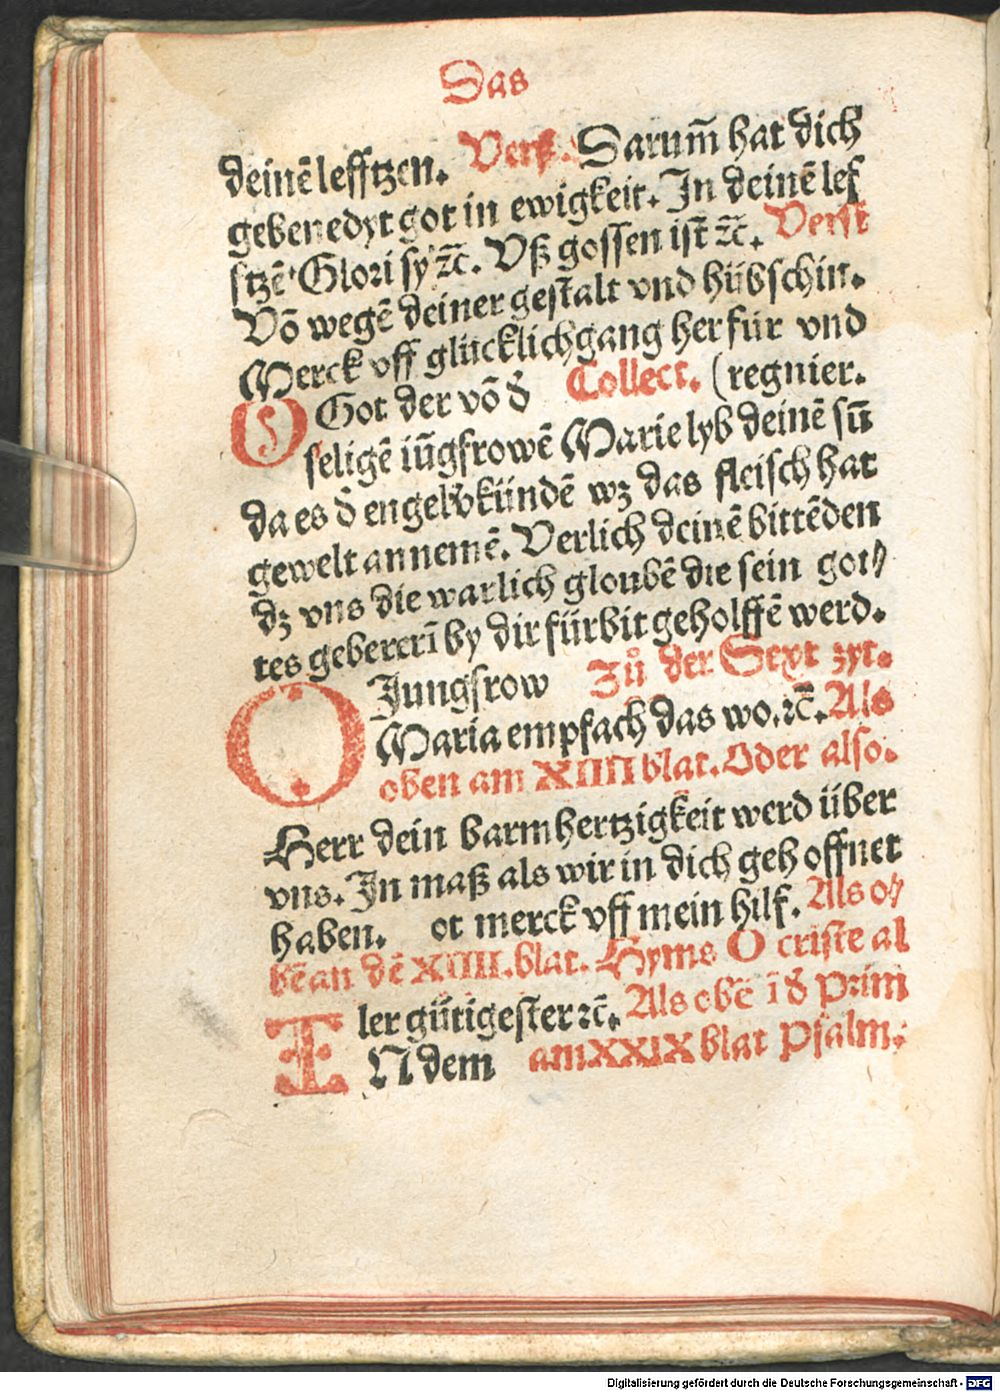 Das
deinē lefftzen. Vers. Darum̄ hat dich
gebenedyt got in ewigkeit. In deinē lef
ftzē Glori sy ꝛc̄. Vß gossen ist ꝛc̄. Verst
Vō wegē deiner gestalt vnd hübschin.
Merck vff glücklich gang herfür vnd
O Got der vō d̄ Collect. (regnier.
seligē iūgfrowē Marie lyb deinē sū
da es d̄ engel vkündē wz das fleisch hat
gewelt annemē. Verlich deinē bittēden
dz vns die warlich gloubē die sein got⸗
tes gebererī by dir fürbit geholffē werd.
O Jungfrow Zů der Sext zyt.
Maria empfach das wo. ꝛc̄. Als
oben am XIIII blat. Oder also.
Herr dein barmhertzigkeit werd über
vns. In maß als wir in dich gehoffnet
haben. ot merck vff mein hilf. Als o⸗
bē an dē XIIII. blat. Hyms O criste al
ler gütigester ꝛc̄. Als obē ī d̄ prim
IN dem am XXIX blat psalm.
Digitalisierung gefördert durch die Deutsche Forschungsgemeinschaft - DFG